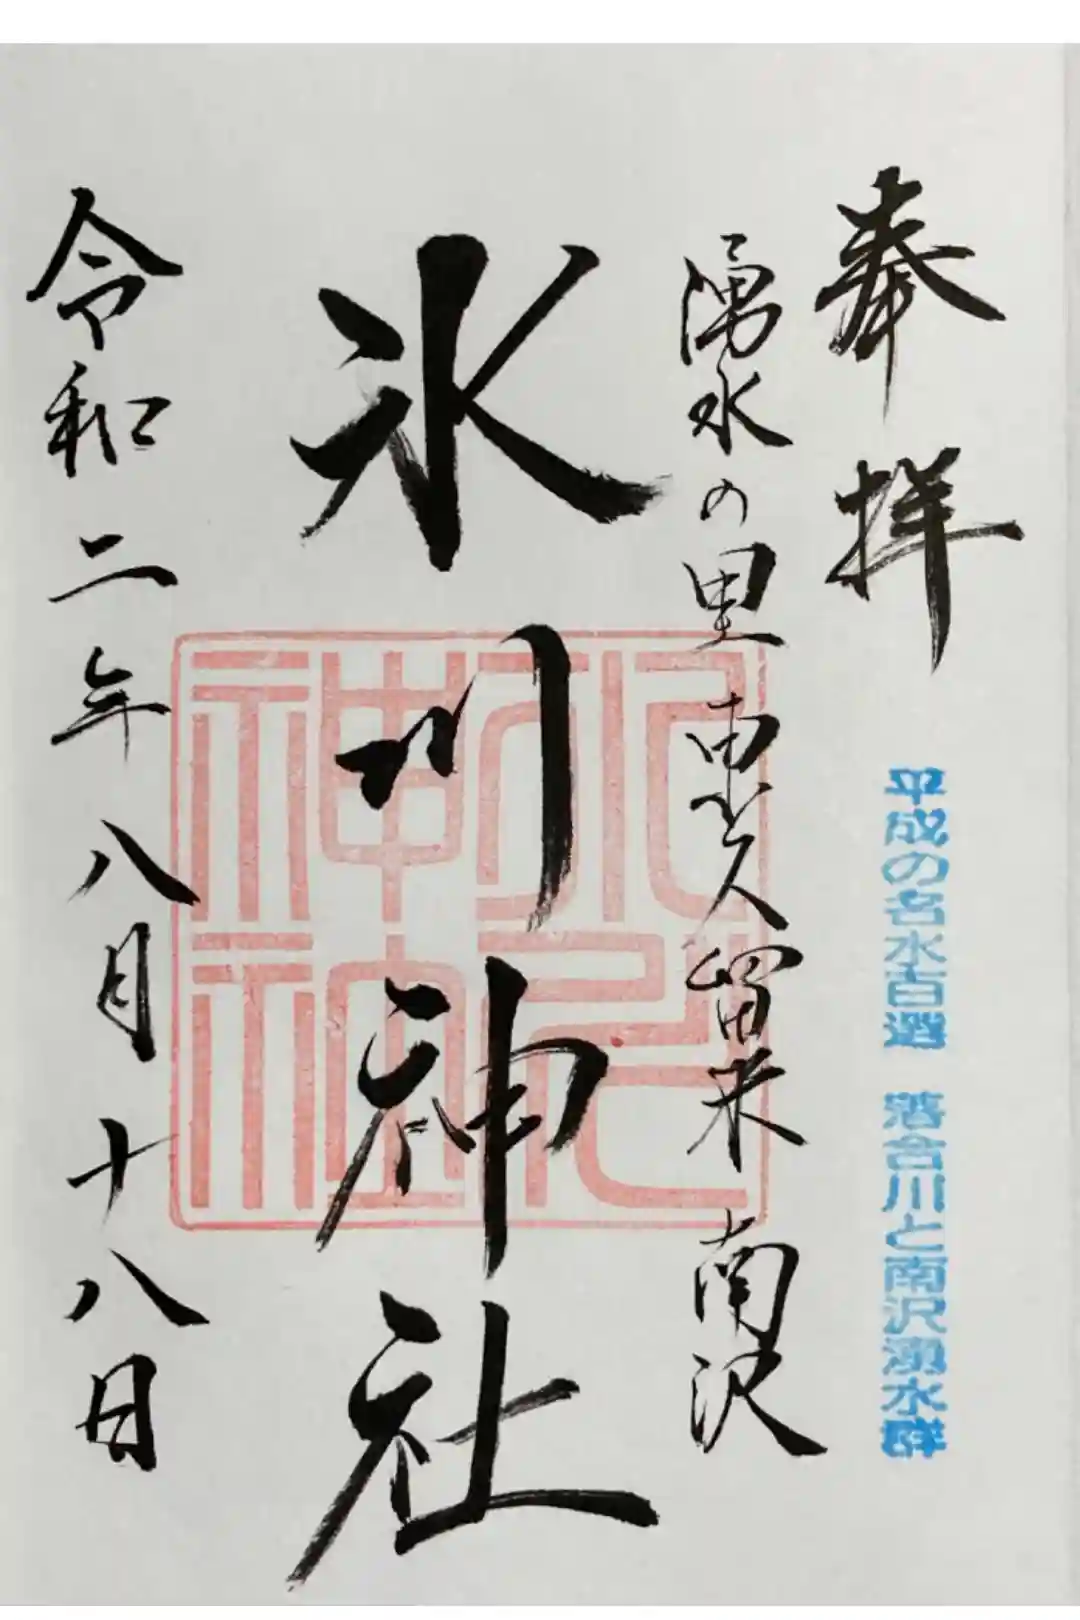 奉拝
平成の名水百選 落合川と南沢湧水群
湧水の里 東久留米 南沢
氷川神社
令和二年八月十八日